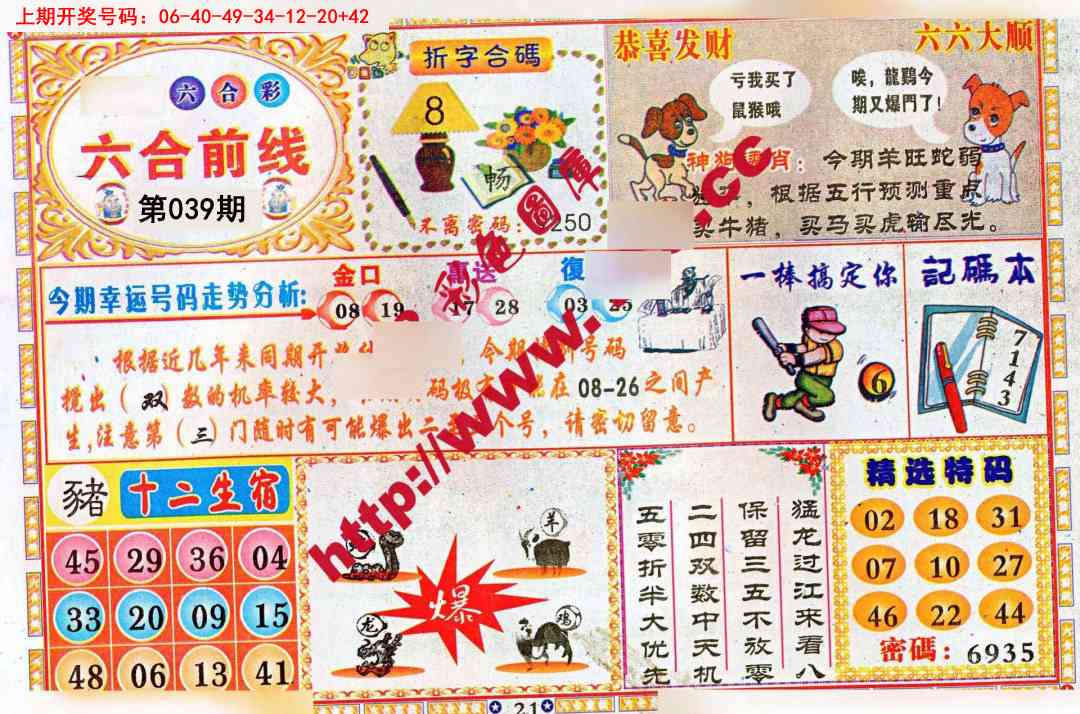 上期开奖号码：06-40-49-34-12-20+42
六合彩
六合前线
第039期
折字合碼
8
畅
不离密码：
250
恭喜发财
六六大顺
亏我买了
鼠猴哦
唉，龍鷄今
期又爆門了！
今期羊旺蛇弱
根据五行预测重点
买牛猪，买马买虎输尽光。
彩色圖庫
http://www.
.cc
今期幸运号码走势分析：
金口
08 19
高送
17 28
復
03 25
根据近几年来同期开
今期
号码
搅出（双）数的机率较大，
码极
在08-26之间产
生,注意第（三）门随时有可能爆出二
个号，请密切留意。
一棒搞定你
6
記碼本
7143
豬
十二生宿
45 29 36 04
33 20 09 15
48 06 13 41
羊
爆
龙
鸡
猛龙过江来看八
保留三五不放零
二四双数中天机
五零折半大优先
精选特码
02 18 31
07 10 27
46 22 44
密碼：6935
21